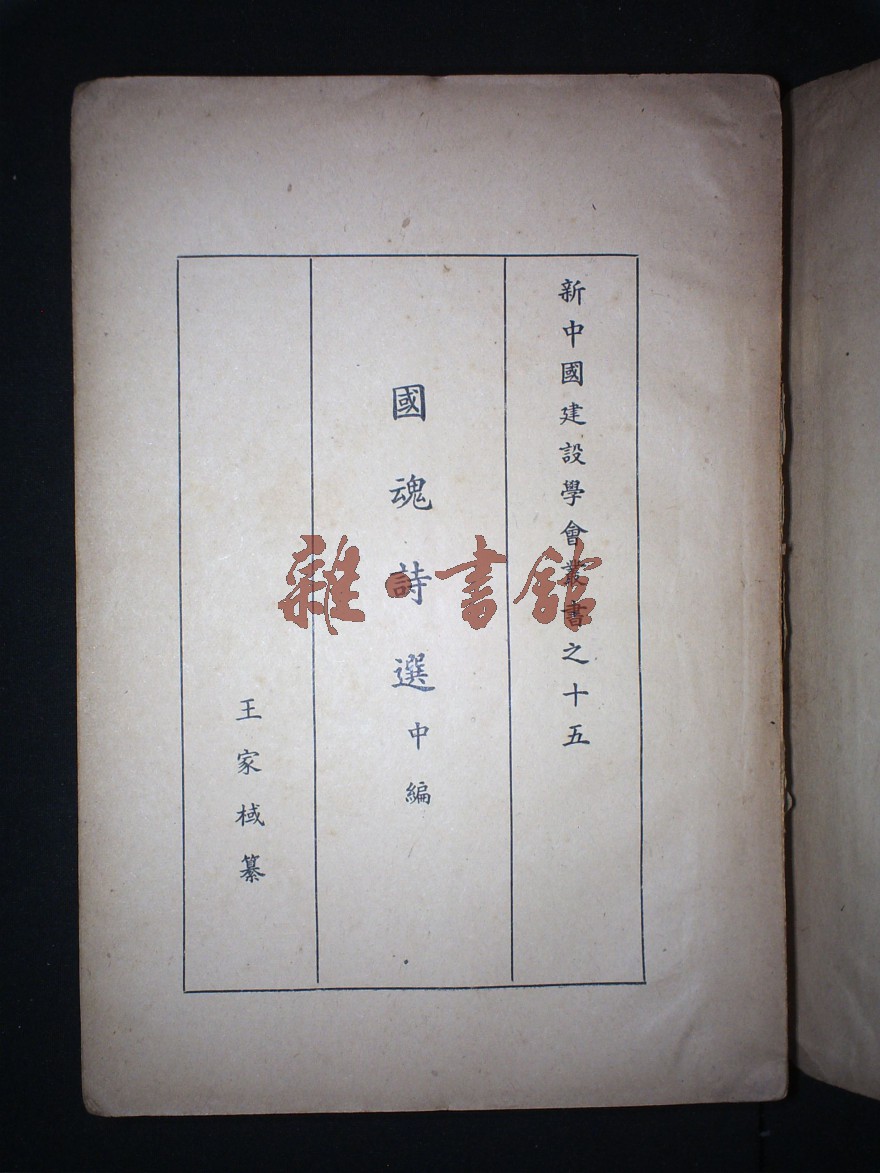 新中國建設學會叢書之十五
國魂詩選中編
王家棫纂
雜·書館